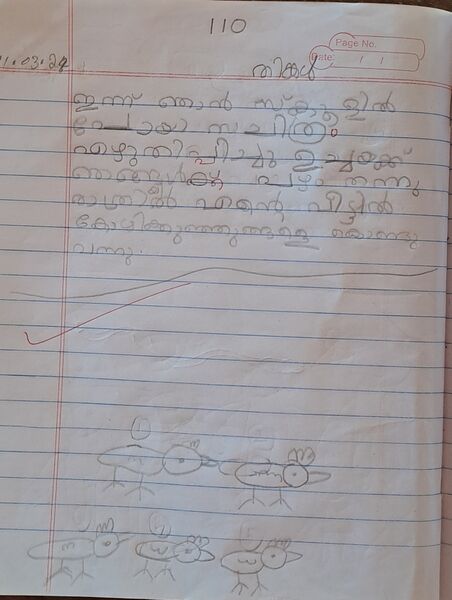 110
Page No.
Date: / /
തിങ്കൾ
ഇന്ന് ഞാൻ സ്കൂളിൽ
പോയി സചിത്രം
എഴുതിപ്പിച്ചു ഉച്ചയ്ക്ക്
ഞങ്ങൾക്ക് പഴം തന്നു
രാത്രിൽ എന്റെ വീട്ടിൽ
കോഴിക്കുഞ്ഞുങ്ങളെ കൊണ്ടു
വന്നു.